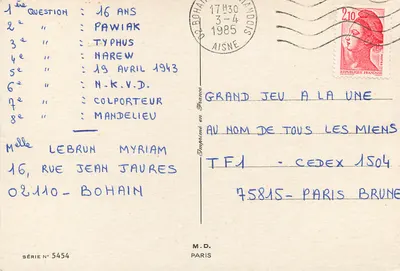 1ère QUESTION : 16 ANS
2e " : PAWIAK
3e " : TYPHUS
4e " : NAREW
5e " : 19 AVRIL 1943
6e " : N.K.V.D.
7e " : COLPORTEUR
8e " : MANDELIEU
Melle LEBRUN MYRIAM
16, RUE JEAN JAURES
02110 - BOHAIN
SÉRIE N° 5454
Imprimé en France
M.D.
PARIS
02 BOHAIN
17H30
3-4
1985
AISNE
2,10
GRAND JEU A LA UNE
AU NOM DE TOUS LES MIENS
TF1 - CEDEX 1504
75815 - PARIS BRUNE